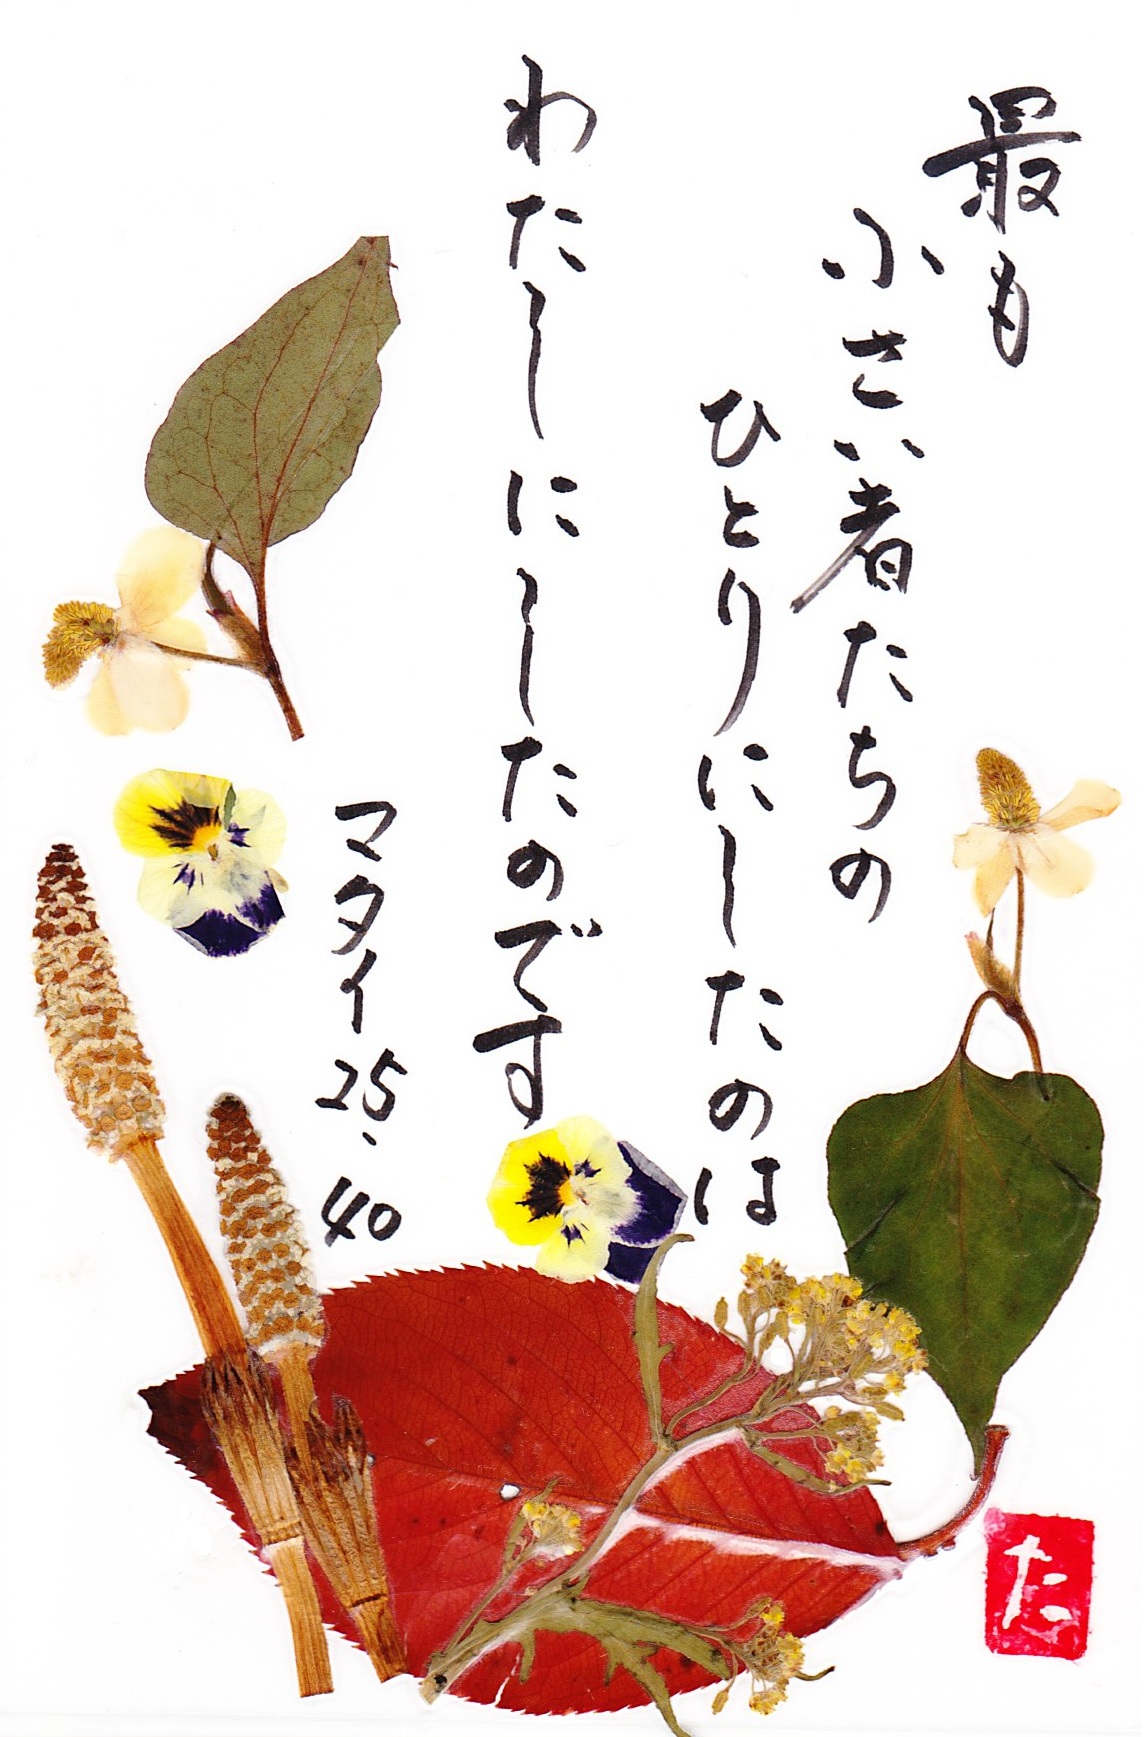 最も
小さい者たちの
ひとりにしたのは
わたしにしたのです
マタイ25.40
た